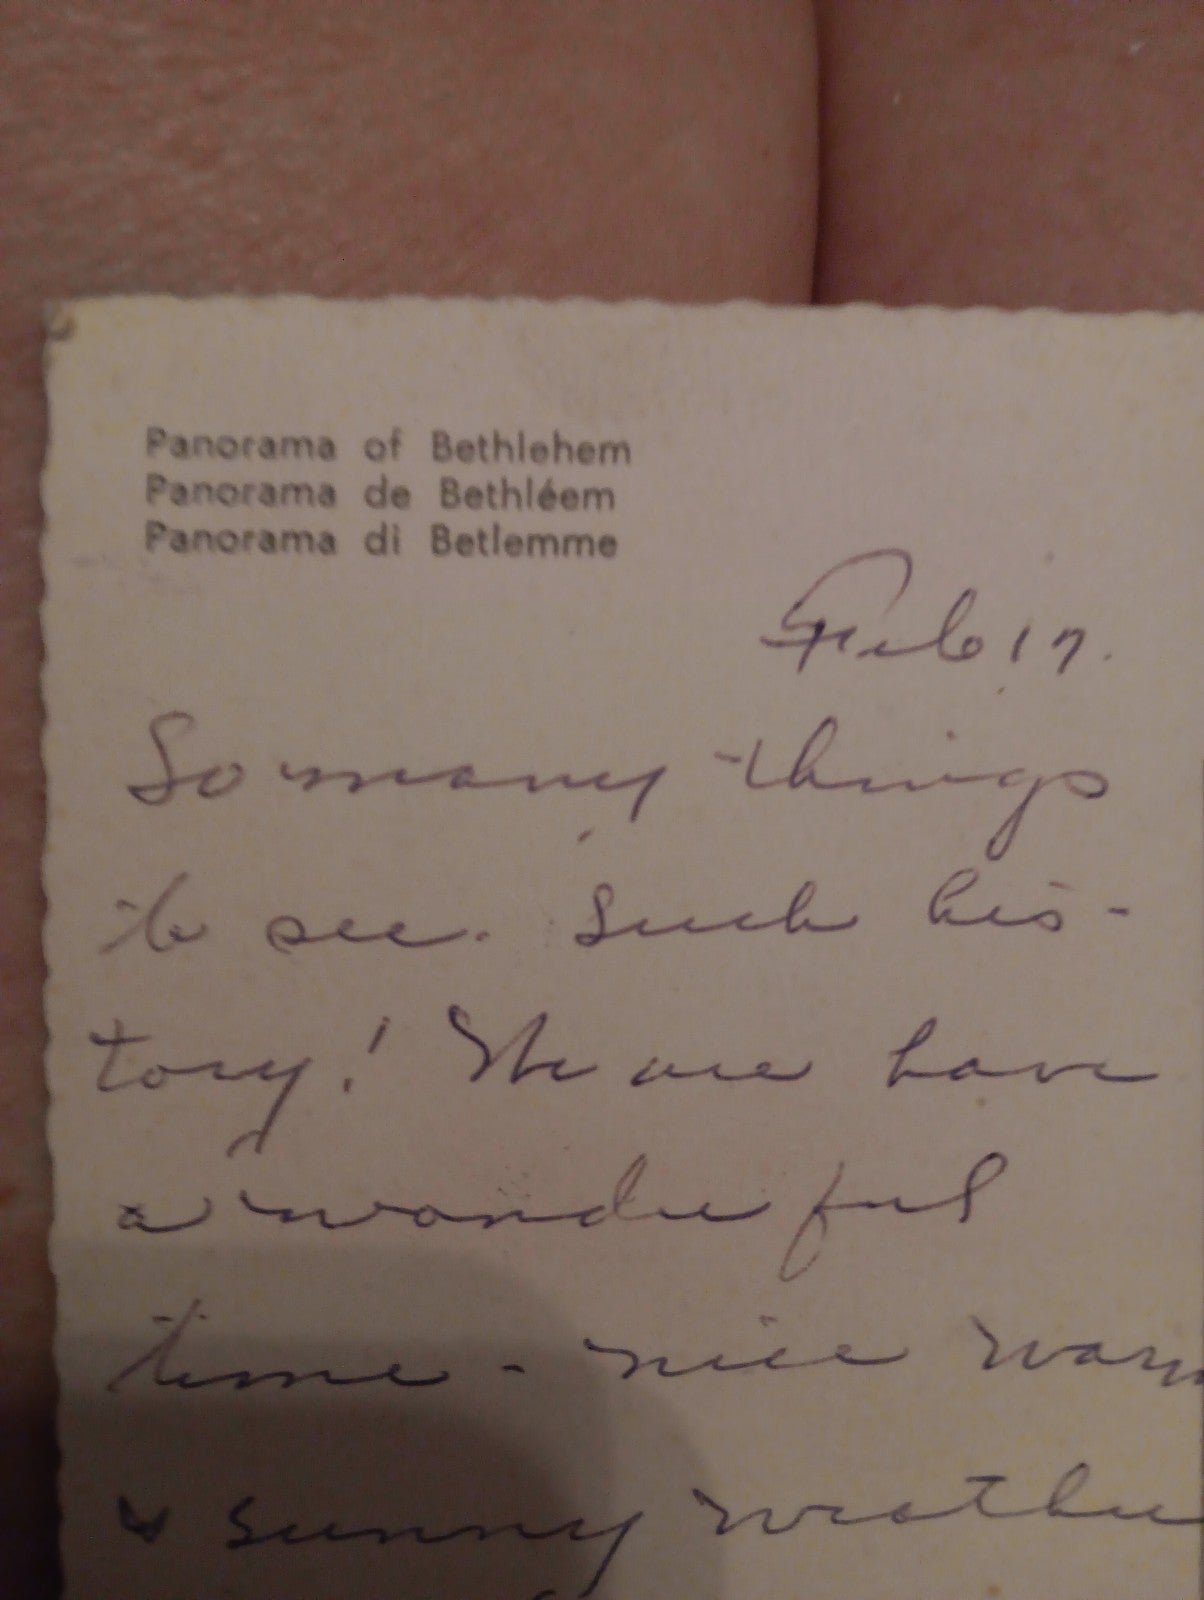 Panorama of Bethlehem
Panorama de Bethléem
Panorama di Betlemme
Feb 17.
So many things
to see. Such his-
tory! We are have
a wonderful
time - nice warm
& sunny weather